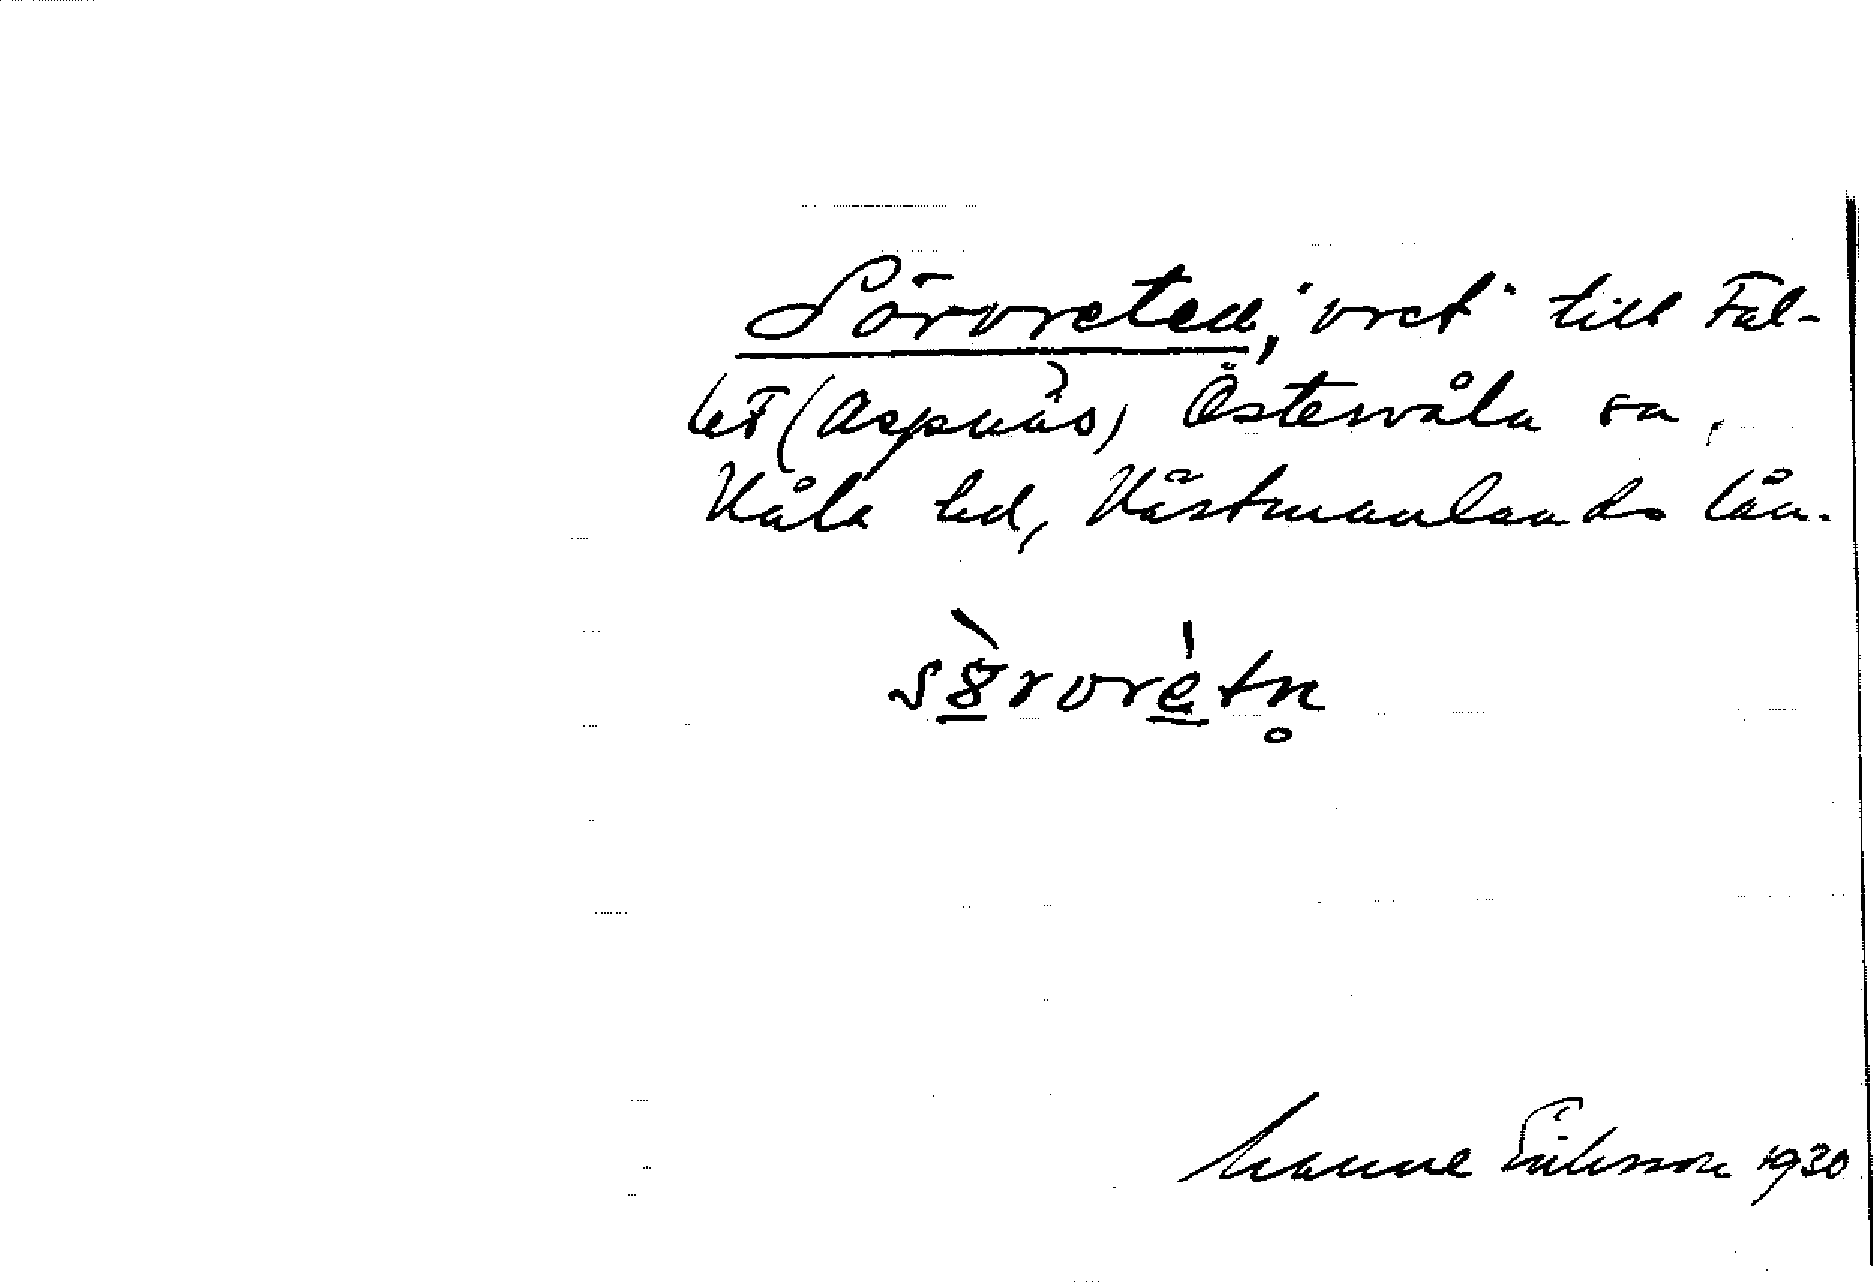 Sörvreten, "vret" till Fal-
let (Aspnäs) Östervåla sn,
Våla hd, Västmanlands län.
sörvretn
Manne Eriksson 1930